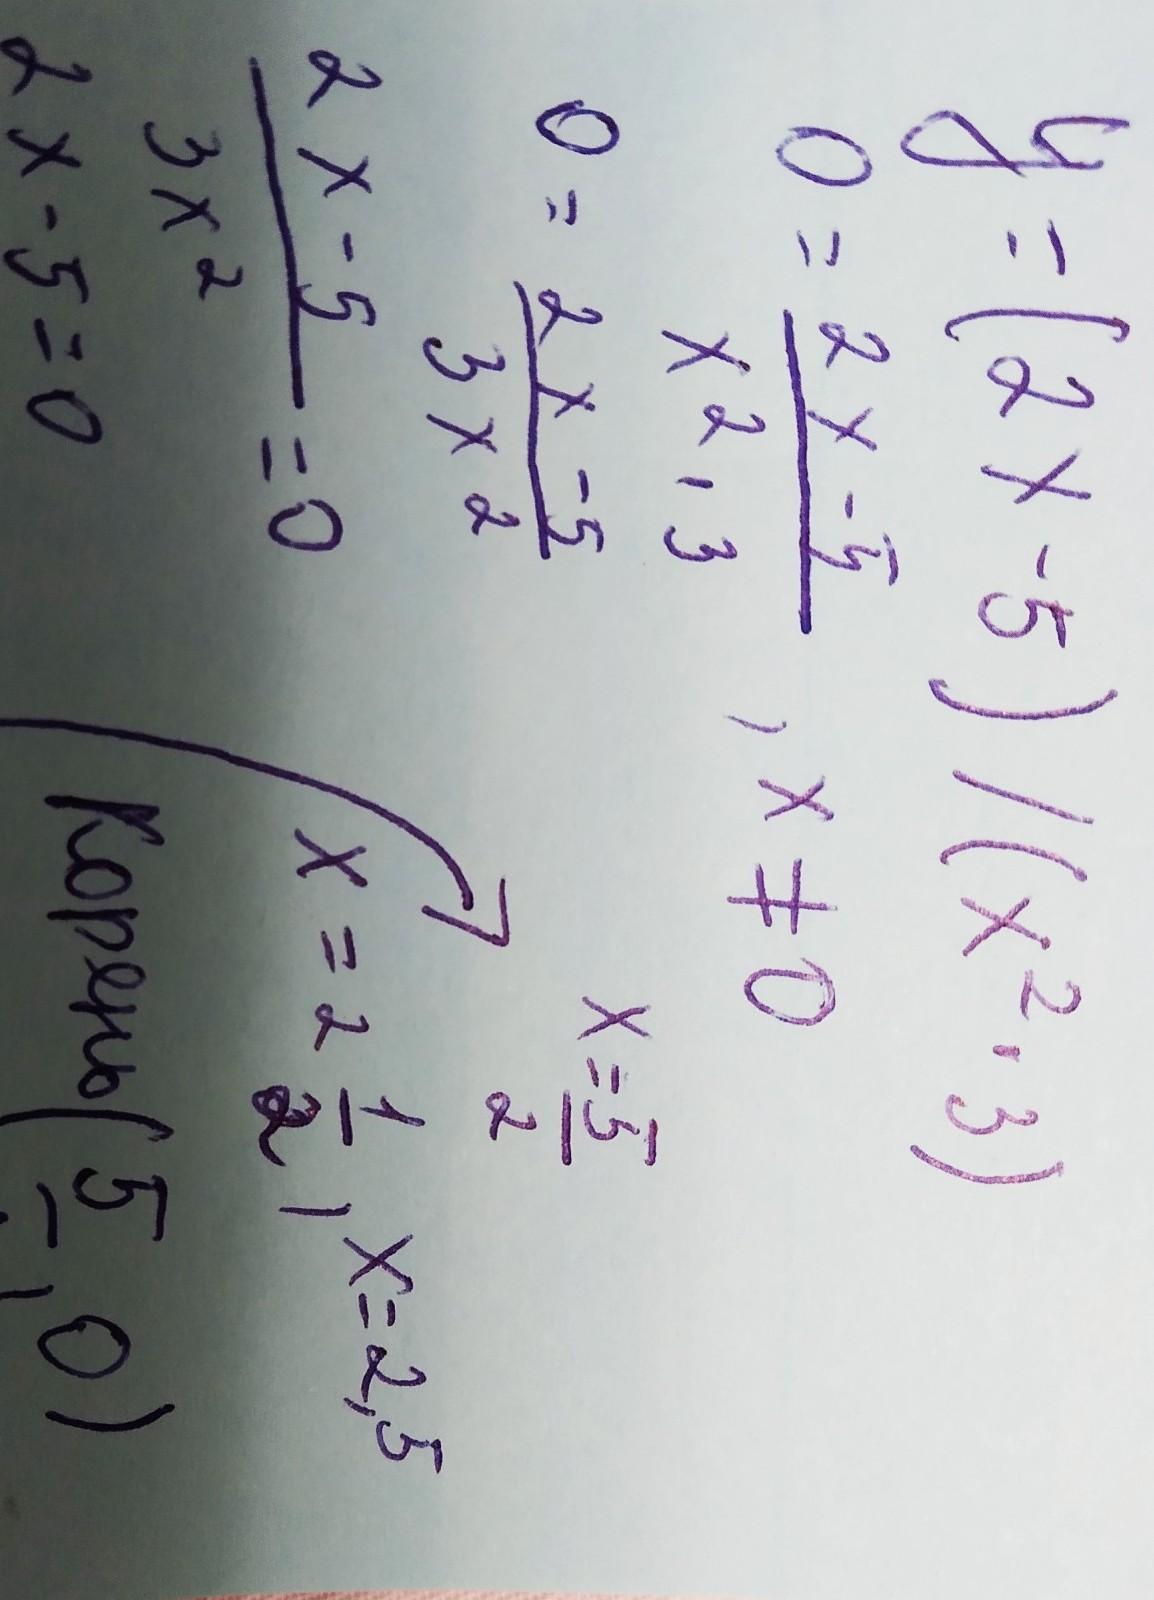 y = (2x-5)/(x²·3)
0 = 2x-5/x²·3, x≠0
0 = 2x-5/3x²
2x-5/3x² = 0
2x-5=0
x=5/2
x=2 1/2, x=2,5
Корень (5/, 0)